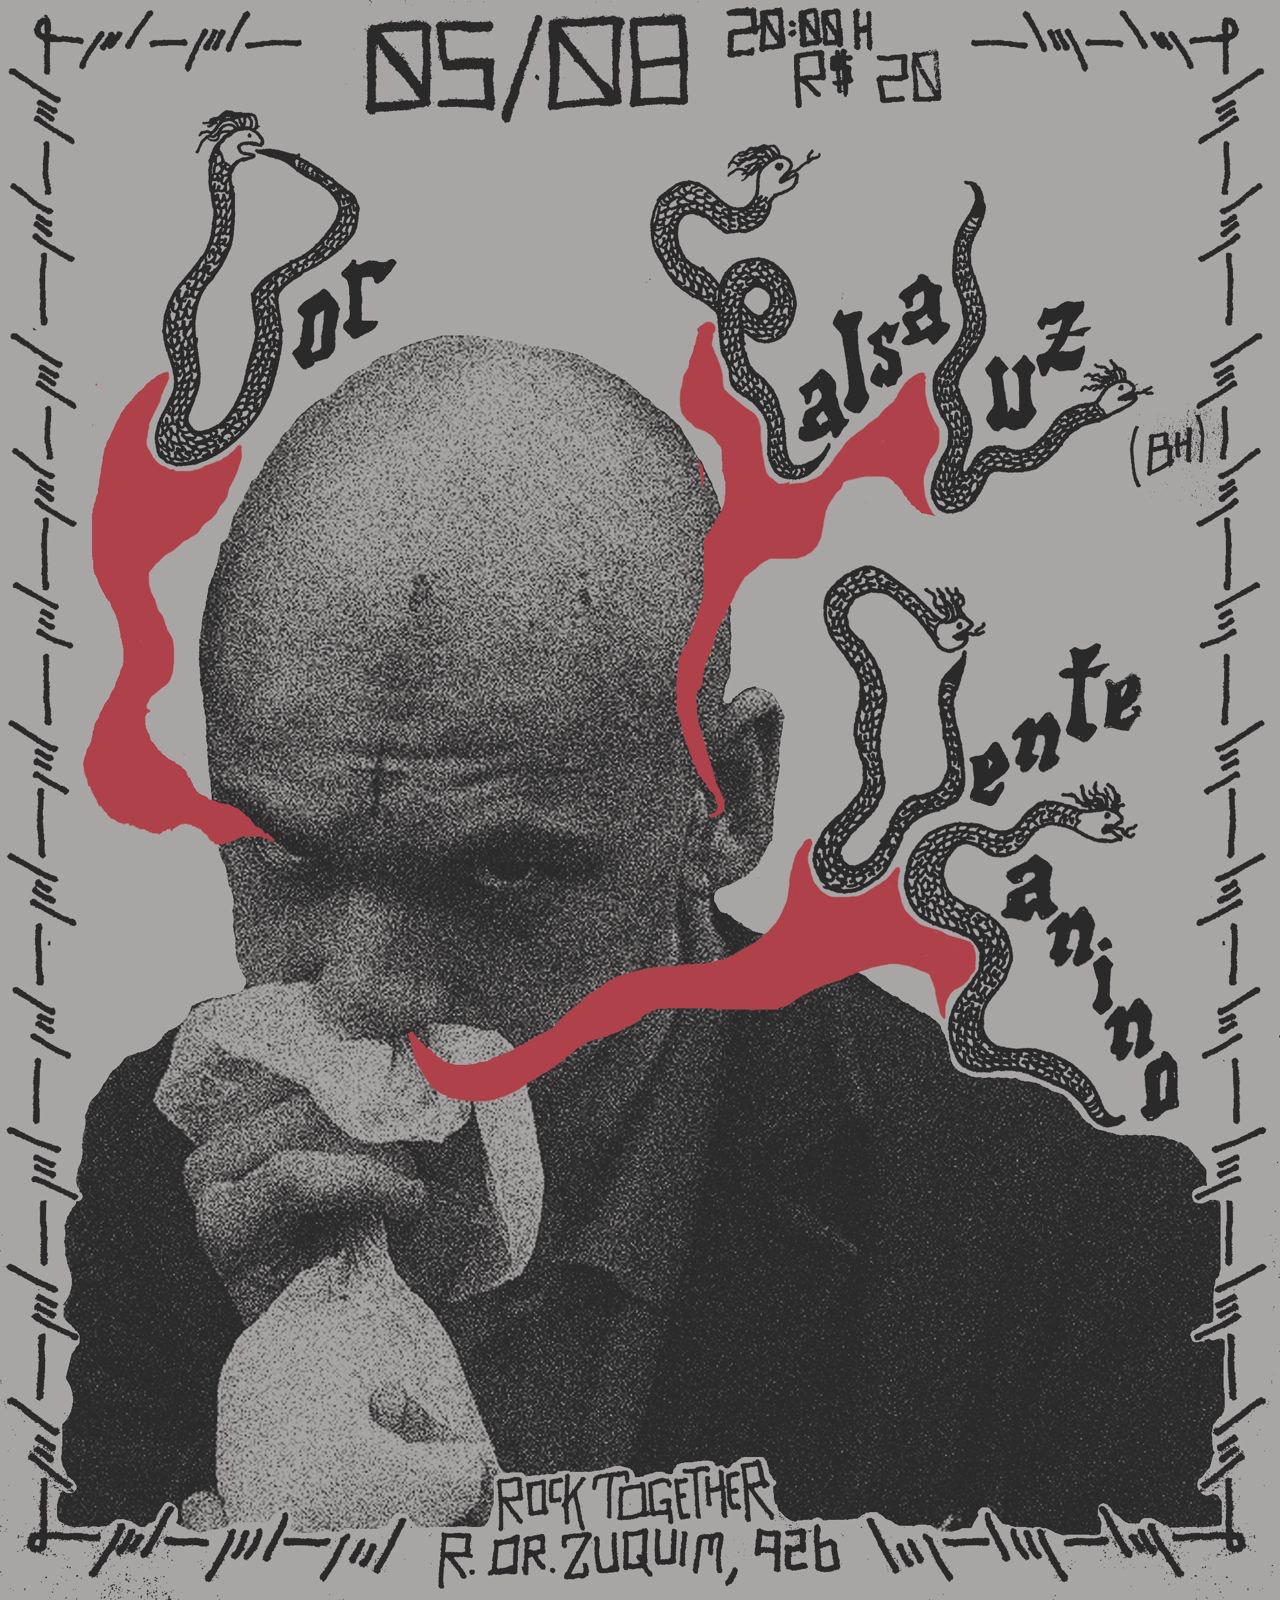 05/08
20:00 H
R$ 20
Dor
Falsa Luz
(BH)
Dente
Canino
ROCK TOGETHER
R. DR. ZUQUIM, 926